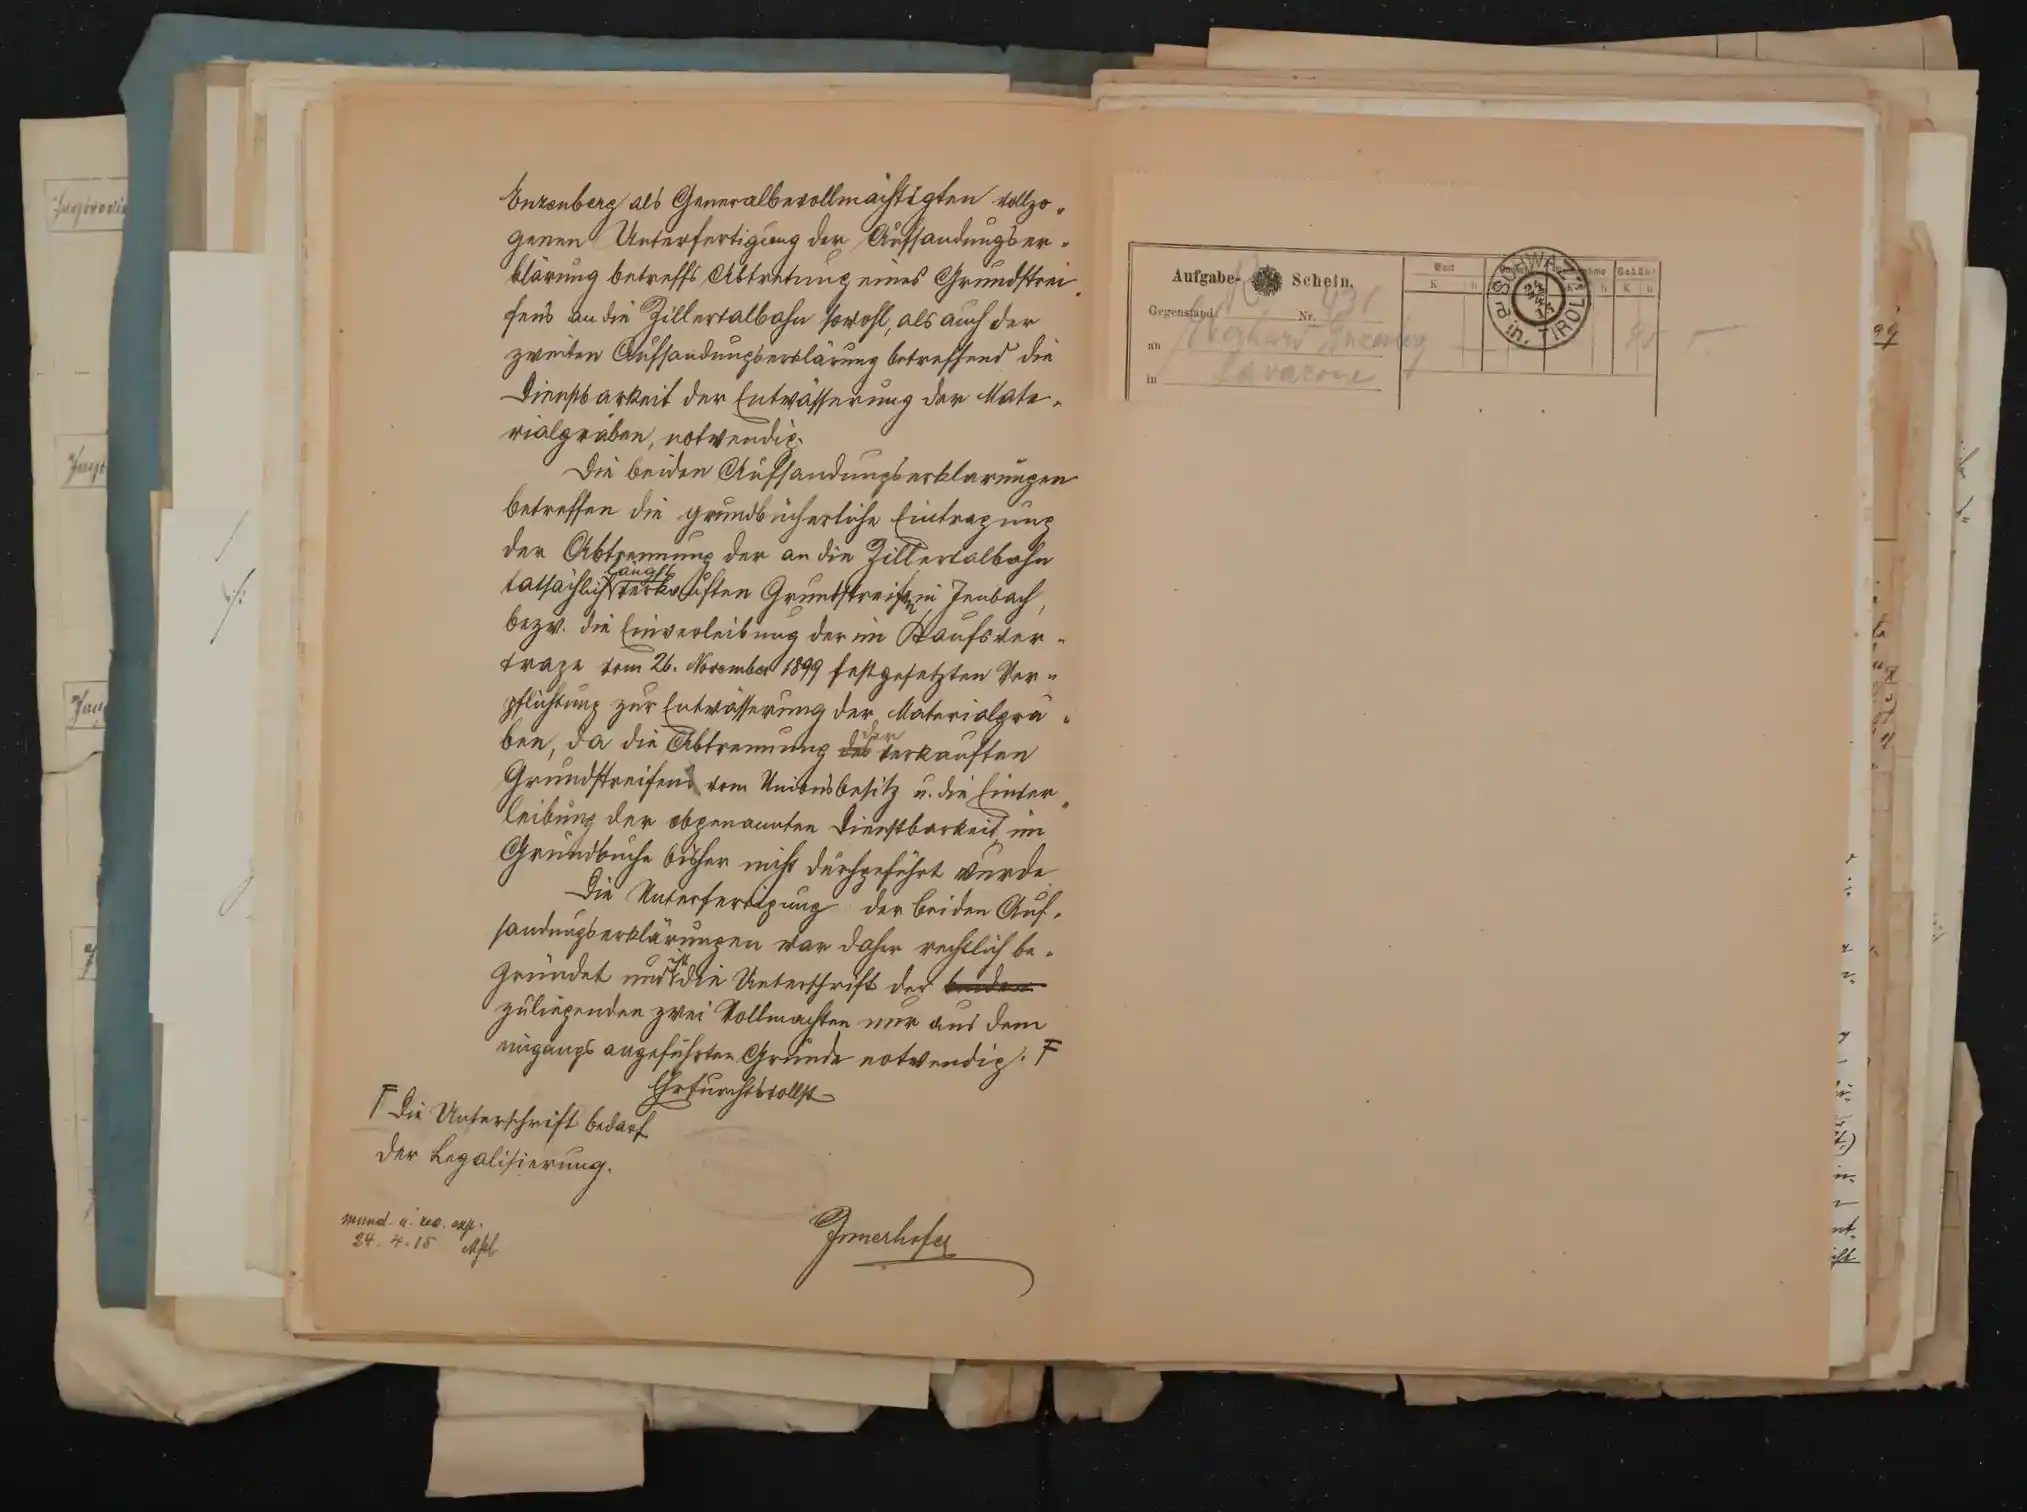 Enzenberg als Generalbevollmächtigten vollzo-
genen Unterfertigung der Aufsandungser-
klärung betreffs Abtretung eines Grundstrei-
fens an die Zillertalbahn sowohl, als auch der
zweiten Aufsandungserklärung betreffend die
Dienstbarkeit der Entwässerung der Mate-
rialgräben, notwendig.
Die beiden Aufsandungserklarungen
betreffen die grundbücherliche Eintragung
der Abtrennung der an die Zillertalbahn
längst
tatsächlich verkauften Grundstreifen in Jenbach,
bezw. die Einverleibung der im Kaufsver-
trage vom 26. November 1899 festgesetzten Ver-
pflichtung zur Entwässerung der Materialgrä-
ben, da die Abtrennung des der verkauften
Grundstreifens vom Unionsbesitz u. die Einver-
leibung der obgenannten Dienstbarkeit im
Grundbuche bisher nicht durchgeführt wurde
Die Unterfertigung der beiden Auf-
sandungserklärungen war daher rechtlich be-
gründet und ist die Unterschrift der beiden
zuliegenden zwei Vollmachten nur aus dem
eingangs angeführten Grunde notwendig. F
Ehrfurchtsvollst
F Die Unterschrift bedarf
der Legalisierung.
mund. u. rev. exp.
24. 4. 15
Innerhofer
Aufgabe- Schein.
Gegenstand R Nr. 431
an Eberhard Enzenberg
in Lavarone
Wert
Gebühr
K h
K h
SCHWAZ in TIROL